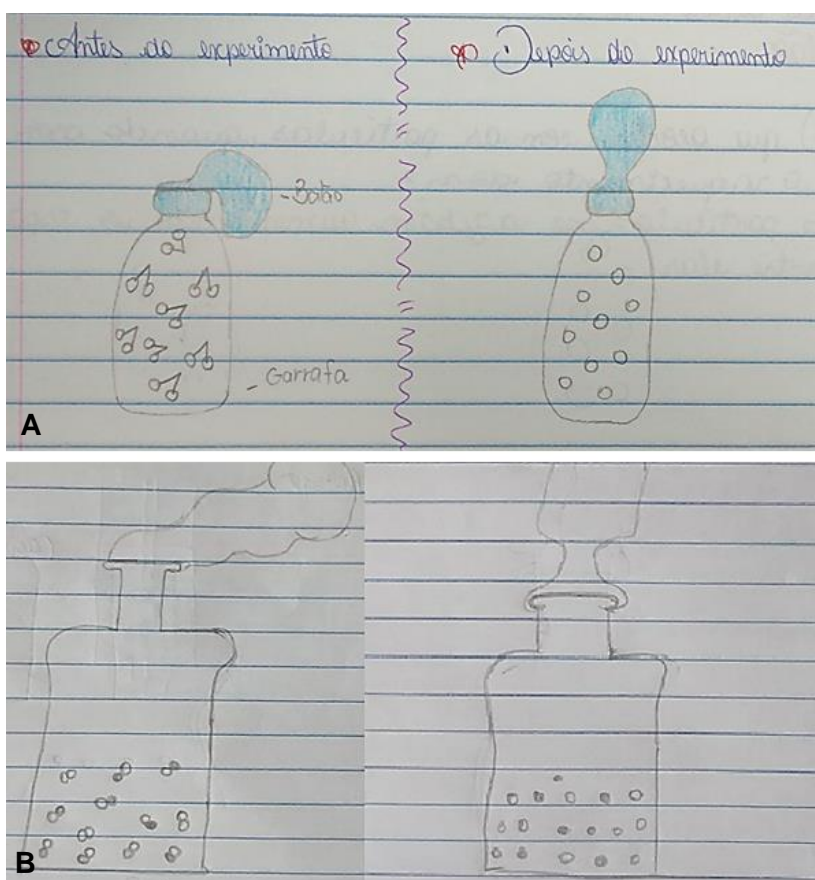 Antes do experimento
Depois do experimento
- Balão
- Garrafa
A
B